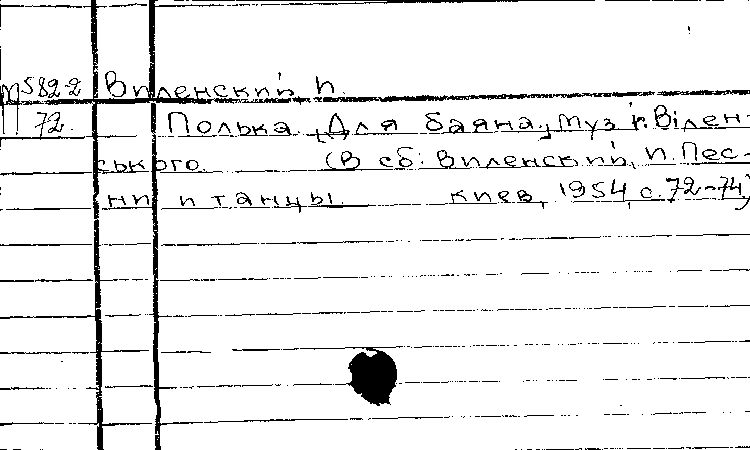 П582-2 Виленский, И.
72. Полька. [Для баяна, муз. І. Вілен-
ського. (В сб: Виленский, И. Пес-
ни и танцы. Киев, 1954, с. 72-74)